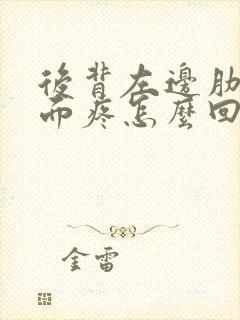 後背左邊肋
而疼怎麼回
金雷